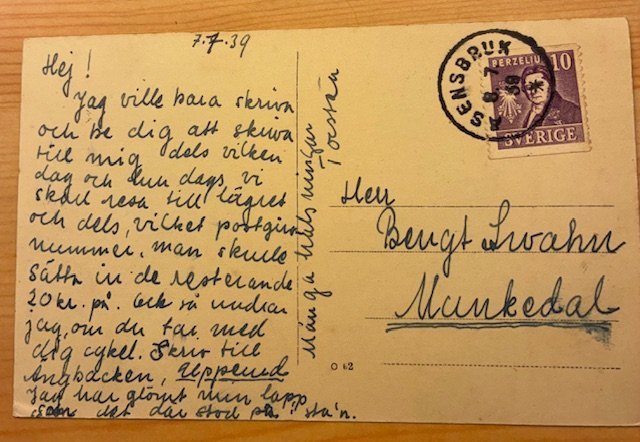 7.7.39
Hej!
Jag ville bara skriva
och be dig att skriva
till mig dels vilken
dag och hur dags vi
skall resa till lägret
och dels, vilket postgiro
nummer, man skulle
sätta in de resterande
20 kr. på. Och så undrar
jag, om du tar med
dig cykel. Skriv till
Ängbacken, Upperud
Jag har glömt min lapp
som det där stod på i sta'n.
Många hälsningar
Torsten
ASENSBRUK
8 7
39
BERZELIUS 10
SVERIGE
Herr
Bengt Swahn
Munkedal
O 62